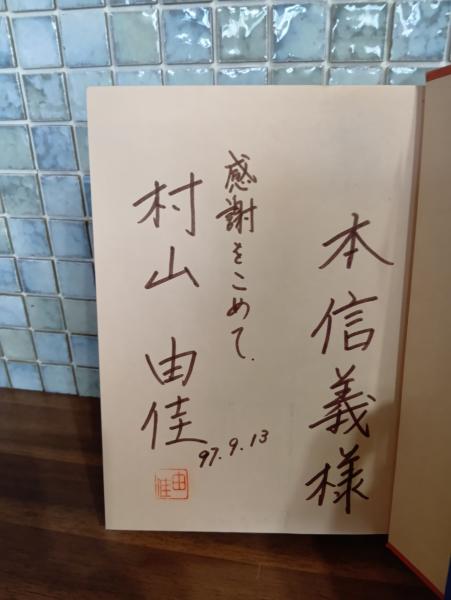 本信義様
感謝をこめて.
村山由佳
97.9.13
由佳